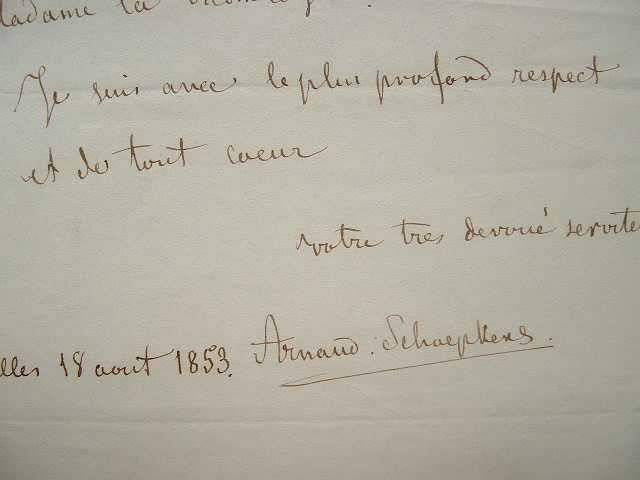 Madame la
Je suis avec le plus profond respect
et de tout coeur
votre tres devoué servite
lles 18 aout 1853. Arnaud. Schaepkens.